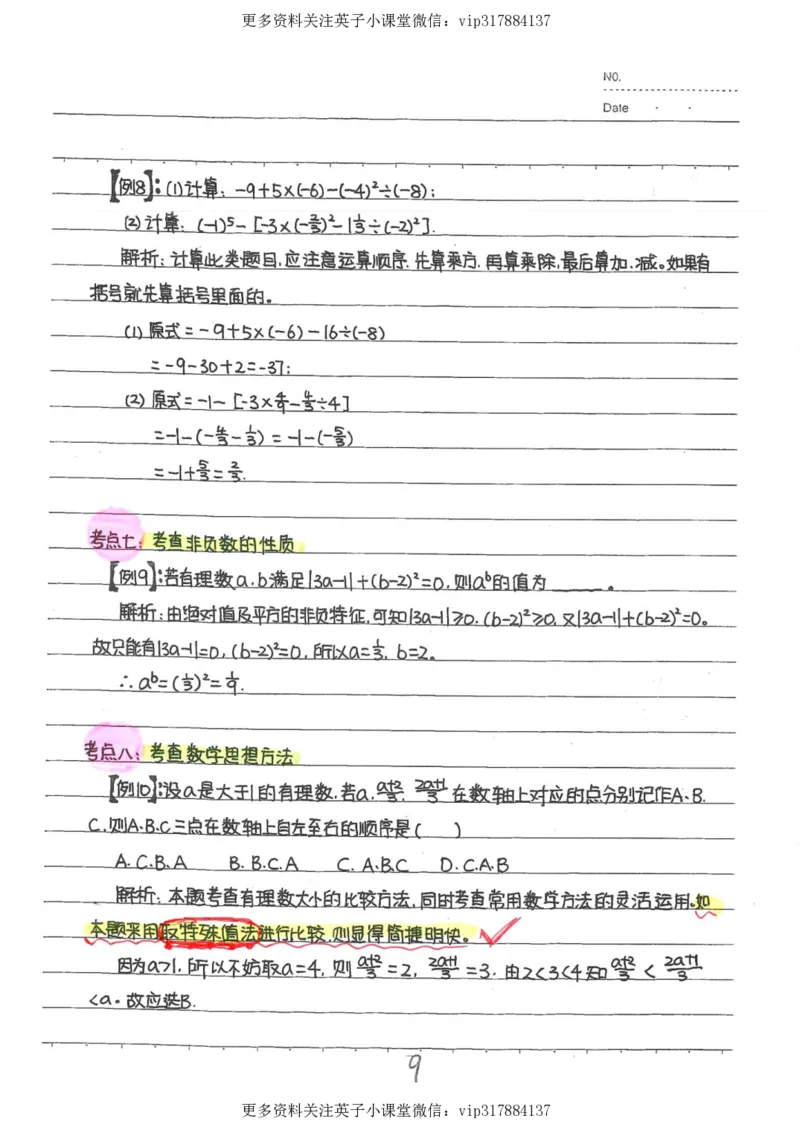 更多资料关注英子小课堂微信：vip317884137
NO.
Date
【例8】：(1)计算：-9+5×(-6)-(-4)²÷(-8)；
(2)计算：(-1)⁵-[-3×(-2/3)²-1 1/3÷(-2)²].
解析：计算此类题目,应注意运算顺序.先算乘方.再算乘除,最后算加.减。如果有
括号就先算括号里面的。
(1)原式=-9+5×(-6)-16÷(-8)
=-9-30+2=-37；
(2)原式=-1-[-3×4/9-4/3÷4]
=-1-(-4/3-1/3)=-1-(-5/3)
=-1+5/3=2/3.
考点七：考查非负数的性质
【例9】：若有理数a.b满足|3a-1|+(b-2)²=0.则aᵇ的值为____。
解析：由绝对值及平方的非负特征,可知|3a-1|≥0.(b-2)²≥0.又|3a-1|+(b-2)²=0。
故只能有|3a-1|=0,(b-2)²=0.所以a=1/3.b=2。
∴aᵇ=(1/3)²=1/9.
考点八：考查数学思想方法
【例10】：设a是大于1的有理数.若a.a+2/3.2a+1/3在数轴上对应的点分别记作A、B.
C.则A.B.C三点在数轴上自左至右的顺序是( )
A.C.B.A B.B.C.A C.A.B.C D.C.A.B
解析：本题考查有理数大小的比较方法,同时考查常用数学方法的灵活运用。如
本题采用取特殊值法进行比较,则显得简捷明快。
因为a>1.所以不妨取a=4,则a+2/3=2,2a+1/3=3.由2<3<4知a+2/3<2a+1/3
<a.故应选B.
9
更多资料关注英子小课堂微信：vip317884137